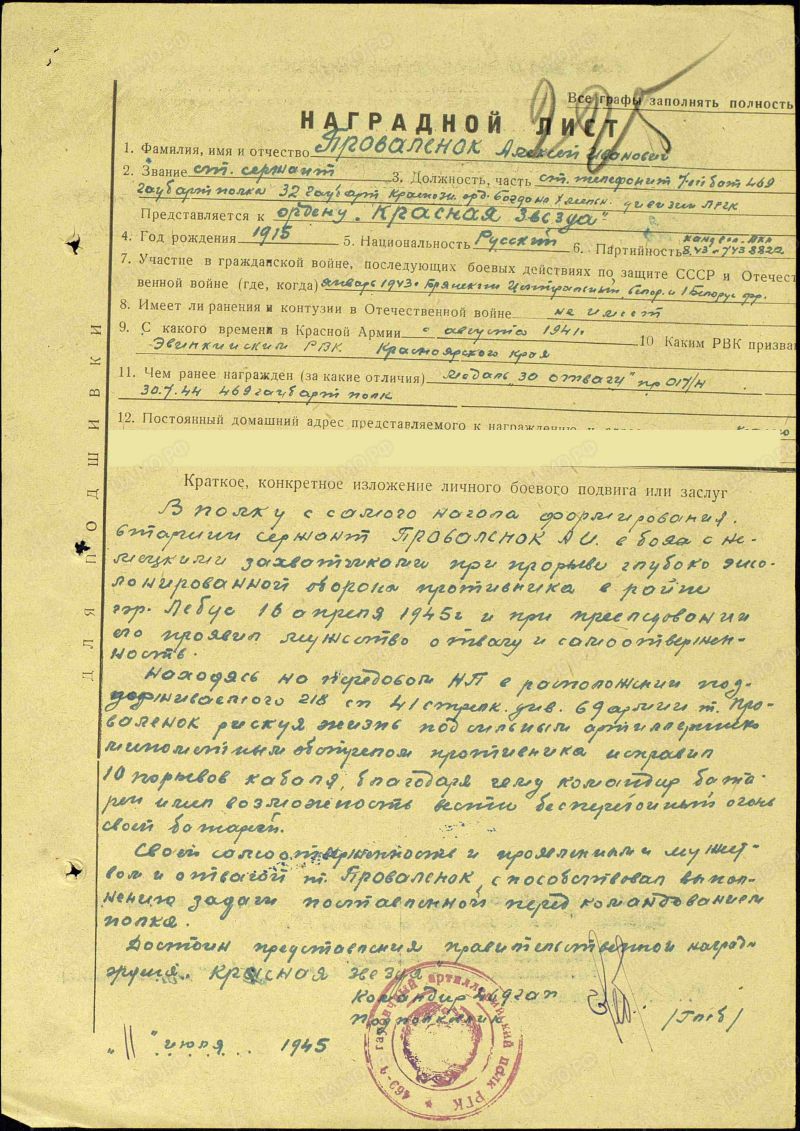 225
Все графы заполнять полность
НАГРАДНОЙ ЛИСТ
1. Фамилия, имя и отчество Проваленок Алексей Иванович
2. Звание ст. сержант 3. Должность, часть ст. телефонист 7 гаубат 469
гаубарт полка 32 гаубарт Краснозн. орд. Богдана Хмельн. дивизии РГК
Представляется к ордену „Красная Звезда"
4. Год рождения 1915 5. Национальность Русский 6. Партийность канд вкп
8.43 - 7438822
7. Участие в гражданской войне, последующих боевых действиях по защите СССР и Отечест
венной войне (где, когда) январь 1943г Брянский Центральный, Белор. и 1 Белорус фр.
8. Имеет ли ранения и контузии в Отечественной войне не имеет
9. С какого времени в Красной Армии с августа 1941г 10 Каким РВК призва
Эвинкийским РВК Красноярского края
11. Чем ранее награжден (за какие отличия) медаль „За отвагу" пр 017/н
30.7.44 469 гаубарт полк
12. Постоянный домашний адрес представляемого к награждению и
Краткое, конкретное изложение личного боевого подвига или заслуг
В полку с самого начала формирования.
Старший сержант Проваленок А.И. в боях с не-
мецкими захватчиками при прорыве глубоко эше-
лонированной обороны противника в районе
гор. Лебус 16 апреля 1945г и при преследовании
его проявил мужество отвагу и самоотвержен-
ность.
Находясь на передовом НП в расположении под-
держиваемого 218 сп 41 стрелк. див. 69 армии т. Про-
валенок рискуя жизнь под сильным артиллерийско
минометным обстрелом противника исправил
10 порывов кабеля, благодаря чему командир бата-
реи имел возможность вести бесперебойный огонь
своей батареей.
Своей самоотверженностью и проявленным мужест-
вом и отвагой т. Проваленок, способствовал выпол-
нению задачи поставленной перед командованием
полка.
Достоин представления правительственной награды
ордена „Красная звезда"
Командир 469 гап
Подполковник
/Глеб/
„11" июля 1945
469-й гаубичный артиллерийский полк РГК
ДЛЯ ПОДШИВКИ